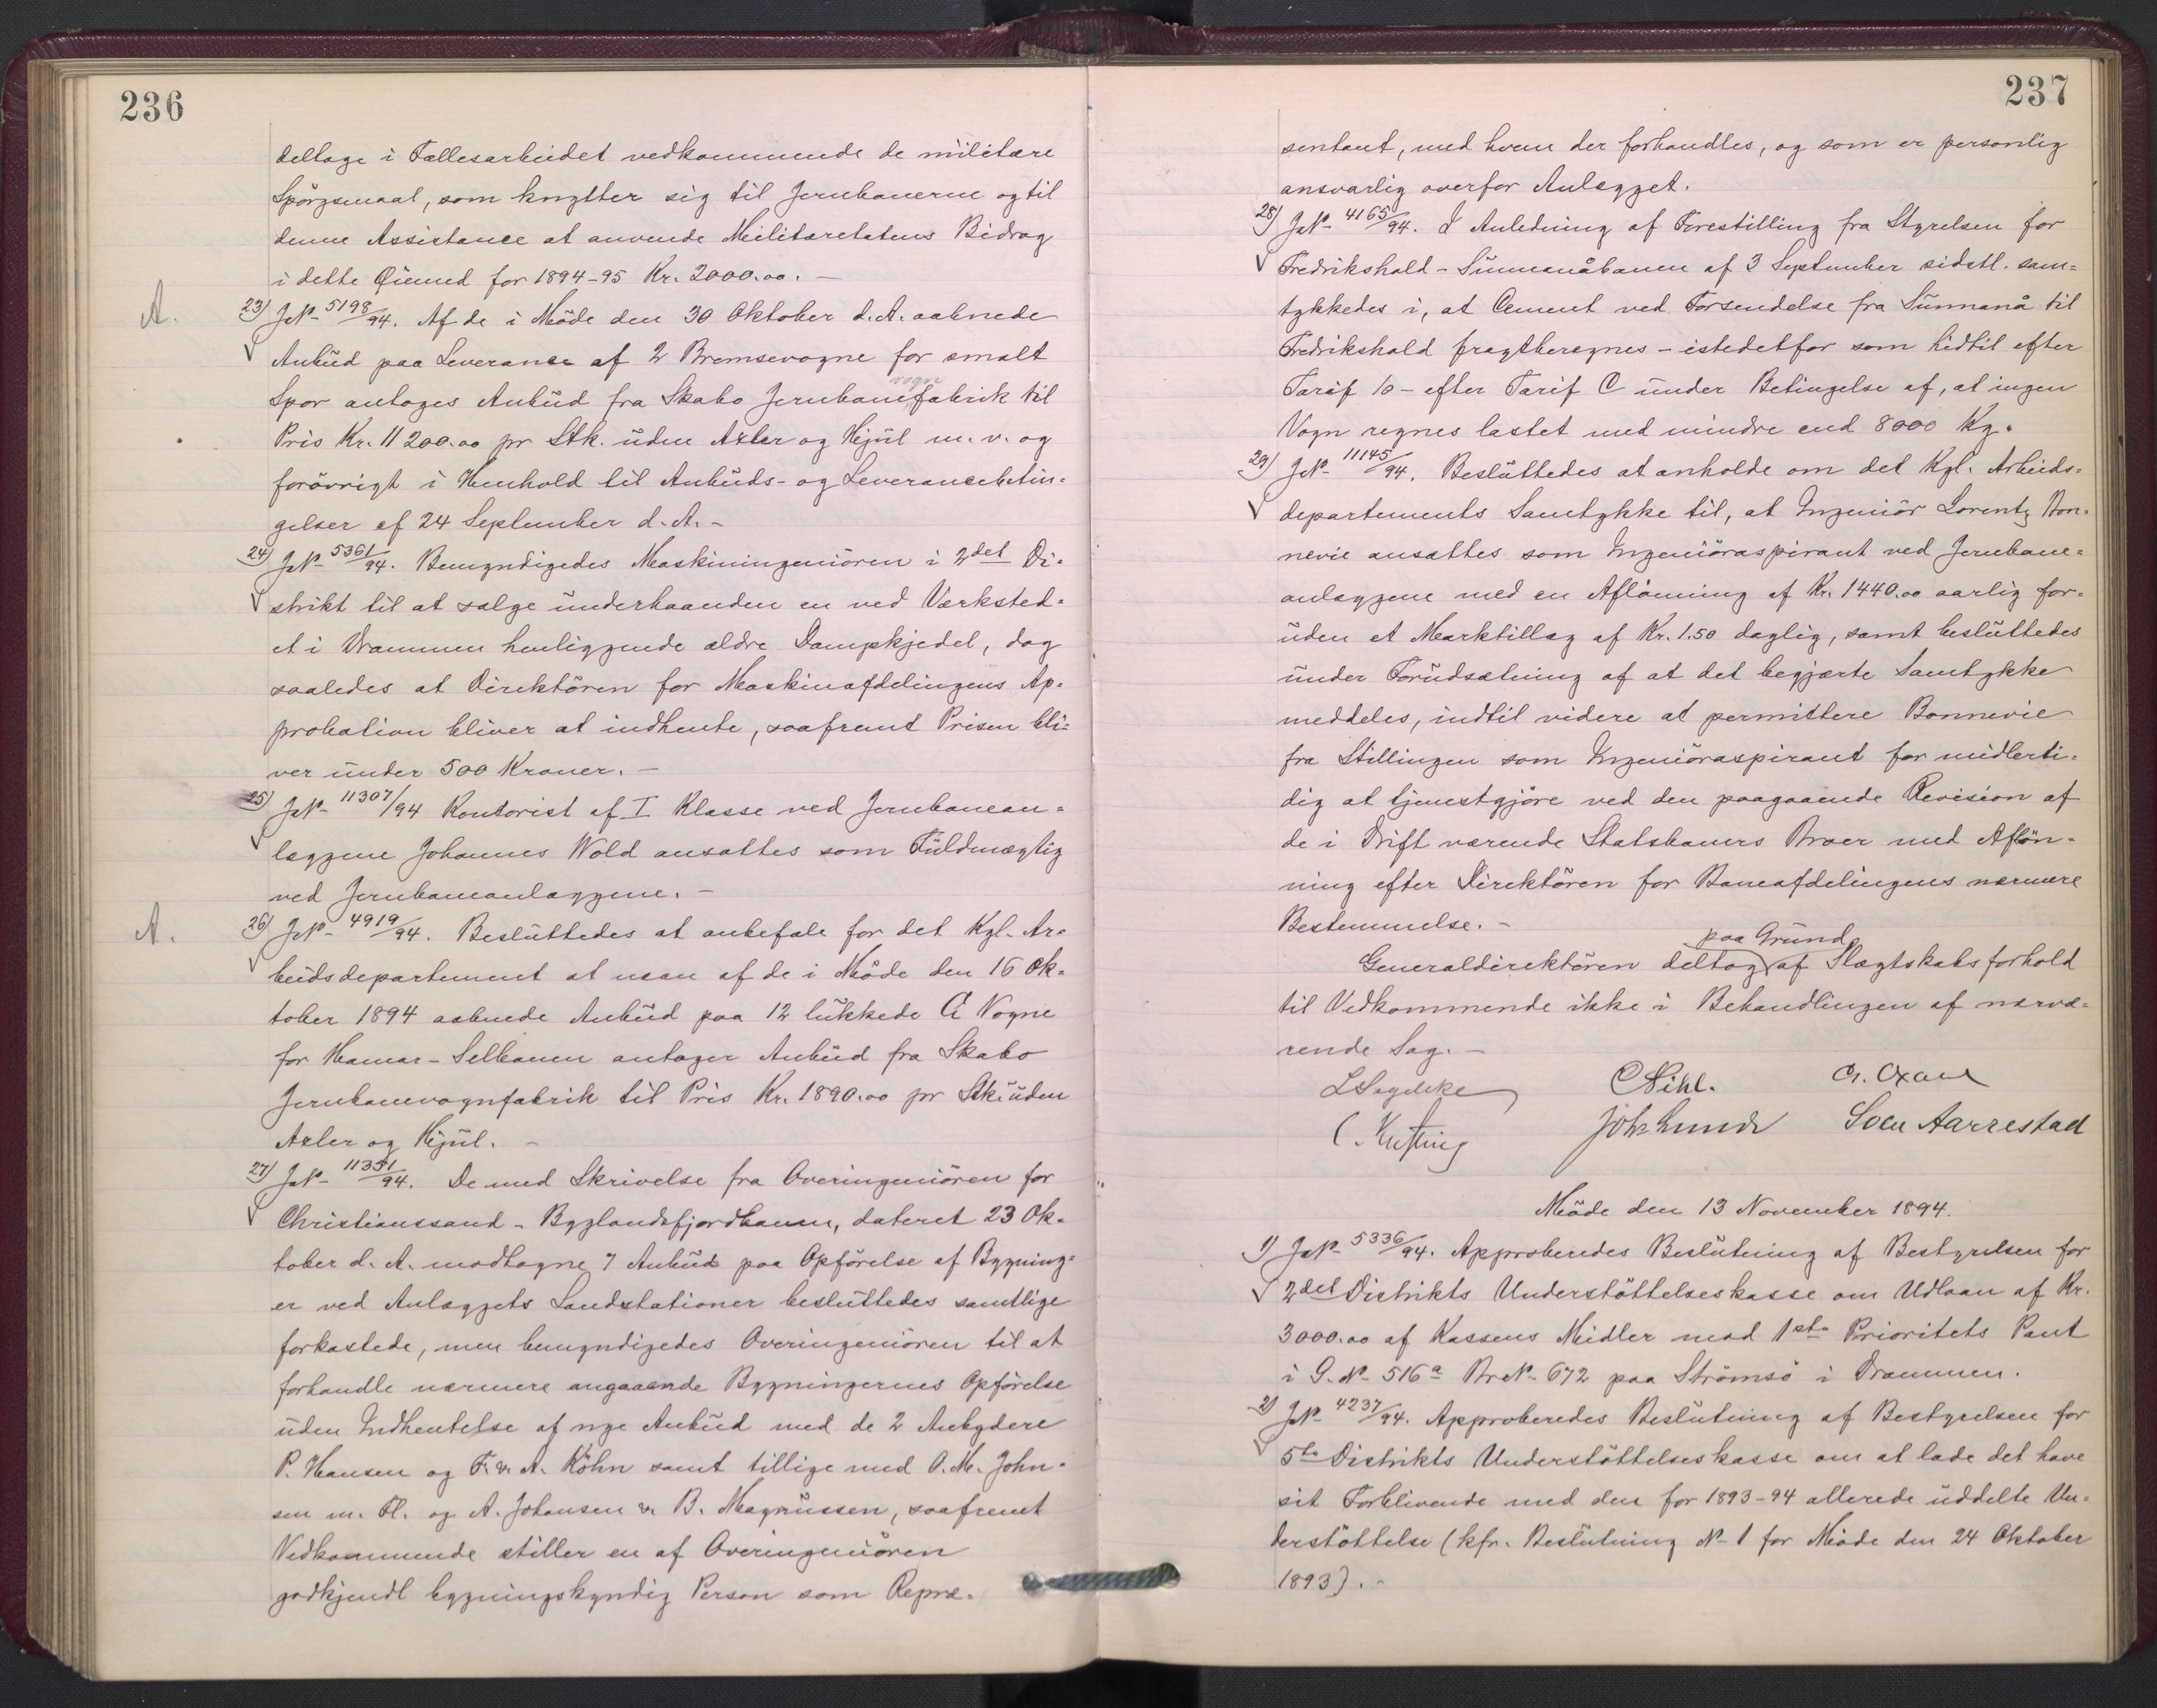 236
deltage i Fællesarbeidet vedkommende de militære
Spörgsmaal, som knytter sig til Jernbanerne og til
denne Assistance at anvende Militæretatens Bidrag
i dette Øiemed for 1894-95 Kr. 2000.00. —
A.
23) JNo 5198/94. Af de i Möde den 30 Oktober d. A. aabnede
Anbud paa Leverance af 2 Bremsevogne for smalt
Spor antoges Anbud fra Skabo Jernbanevognfabrik til
Pris Kr. 11 200.00 pr Stk. uden Axler og Hjul m. v. og
forövrigt i Henhold til Anbuds- og Leverancebetin-
gelser af 24 September d. A. —
24) JNo 5361/94. Bemyndigedes Maskiningeniören i 2det Di-
strikt til at sælge underhaanden en ved Værksted-
et i Drammen henliggende ældre Dampkjedel, dog
saaledes at Direktören for Maskinafdelingens Ap-
probation bliver at indhente, saafremt Prisen bli-
ver under 500 Kroner. —
25) JNo 11307/94 Kontorist af I Klasse ved Jernbanean-
læggene Johannes Wold ansattes som Fuldmægtig
ved Jernbaneanlæggene. —
A.
26) JNo 4919/94. Besluttedes at anbefale for det Kgl. Ar-
beidsdepartement at man af de i Möde den 16 Ok-
tober 1894 aabnede Anbud paa 12 lukkede G Vogne
for Hamar-Selbanen antager Anbud fra Skabo
Jernbanevognfabrik til Pris Kr. 1890.00 pr Stk. uden
Axler og Hjul. —
27) JNo 11351/94. De med Skrivelse fra Overingeniören for
Christianssand-Byglandsfjordbanen, dateret 23 Ok-
tober d. A. modtagne 7 Anbud paa Opförelse af Bygning-
er ved Anlæggets Landstationer besluttedes samtlige
forkastede, men bemyndigedes Overingeniören til at
forhandle nærmere angaaende Bygningernes Opförelse
uden Indhentelse af nye Anbud med de 2 Anbydere
P. Hansen og F. & A. Köhn samt tillige med O. M. John-
sen m. Fl. og A. Johansen & B. Magnussen, saafremt
Vedkommende stiller en af Overingeniören
godkjendt bygningskyndig Person som Repræ-
237
sentant, med hvem der forhandles, og som er personlig
ansvarlig overfor Anlægget.
28) JNo 4165/94. I Anledning af Forestilling fra Styrelsen for
Fredrikshald-Sunnanåbanen af 3 September sidstl. sam-
tykkedes i, at Cement ved Forsendelse fra Sunnanå til
Fredrikshald fragtberegnes - istedetfor som hidtil efter
Tarif b - efter Tarif C under Betingelse af, at ingen
Vogn regnes lastet med mindre end 8000 Kg.
29) JNo 11145/94. Besluttedes at anholde om det Kgl. Arbeids-
departements Samtykke til, at Ingeniör Lorentz Bon-
nevie ansættes som Ingeniöraspirant ved Jernbane-
anlæggene med en Aflönning af Kr. 1440.00 aarlig for-
uden et Marktillæg af Kr. 1.50 daglig, samt besluttedes
under Forudsætning af at det begjærte Samtykke
meddeles, indtil videre at permittere Bonnevie
fra Stillingen som Ingeniöraspirant for midlerti-
dig at tjenestgjöre ved den paagaaende Revision af
de i Drift værende Statsbaners Broer med Aflön-
ning efter Direktören for Baneafdelingens nærmere
Bestemmelse. —
Generaldirektören deltog paa Grund af Slægtskabsforhold
til Vedkommende ikke i Behandlingen af nærvæ-
rende Sag. —
C Pihl.
Joh. Lunde Sven Aarrestad
Möde den 13 November 1894.
1) JNo 5336/94. Approberedes Beslutning af Bestyrelsen for
2det Distrikts Understöttelseskasse om Udlaan af Kr.
3000.00 af Kassens Midler mod 1ste Prioritets Pant
i G. No 516a BrNo 672 paa Strömsö i Drammen.
2) JNo 4237/94. Approberedes Beslutning af Bestyrelsen for
5te Distrikts Understöttelseskasse om at lade det have
sit Forblivende med den for 1893-94 allerede uddelte Un-
derstöttelse (kfr. Beslutning No 1 for Möde den 24 Oktober
1893). —